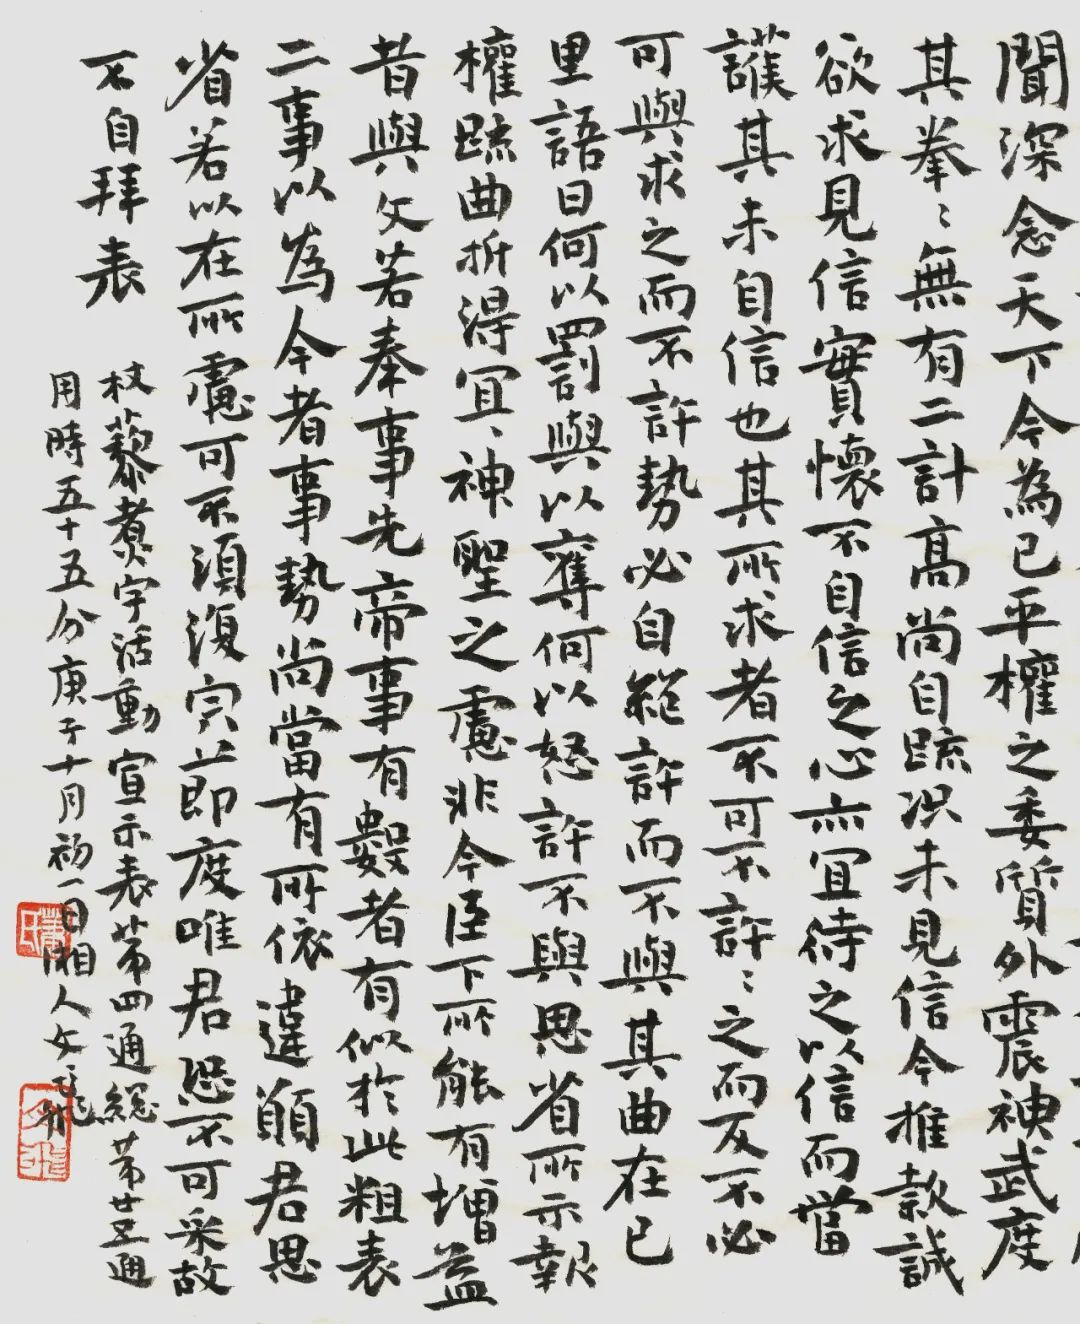 聞深念天下今為已平權之委質外震神武度
其拳〻無有二計高尚自疏況未見信今推款誠
欲求見信實懷不自信之心亦宜待之以信而當
護其未自信也其所求者不可不許〻之而反不必
可與求之而不許勢必自絕許而不與其曲在已
里語曰何以罰與以奪何以怒許不與思省所示報
權疏曲折得宜〻神聖之慮非今臣下所能有增益
昔與文若奉事先帝事有數者有似於此粗表
二事以為今者事勢尚當有所依違願君思
省若以在所慮可不須復節度唯君恐不可采故
不自拜表
杖藜煮字活動宣示表第四通總第廿五通
用時五十五分庚子十月初一日湘人文